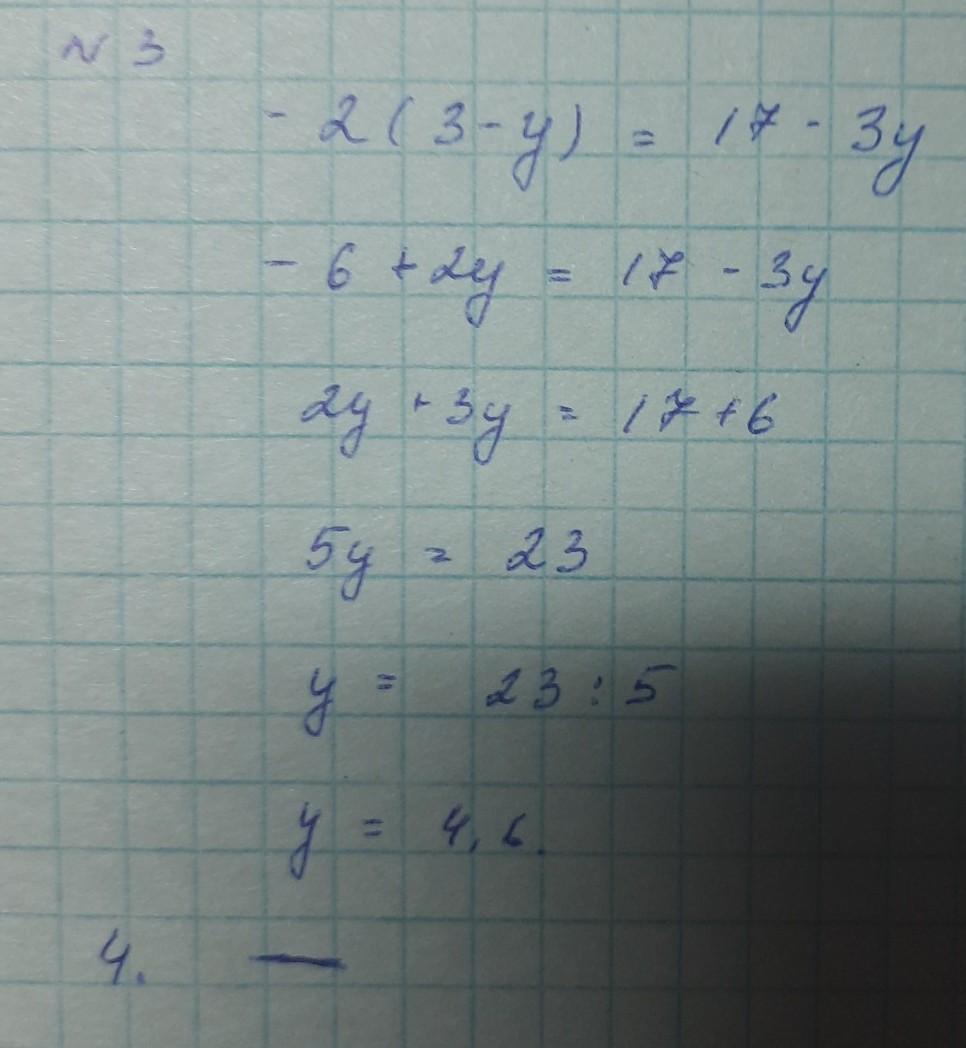 № 3
- 2 ( 3 - y ) = 17 - 3y
- 6 + 2y = 17 - 3y
2y + 3y = 17 + 6
5y = 23
y = 23 : 5
y = 4,6.
4. —